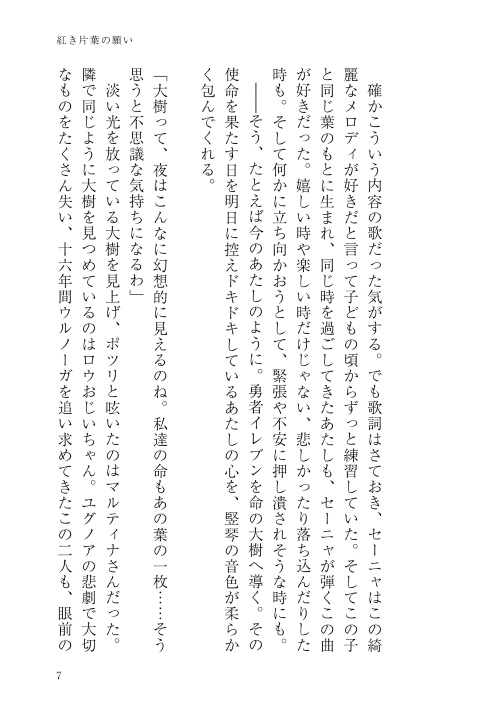 紅き片葉の願い
　確かこういう内容の歌だった気がする。でも歌詞はさておき、セーニャはこの綺
麗なメロディが好きだと言って子どもの頃からずっと練習していた。そしてこの子
と同じ葉のもとに生まれ、同じ時を過ごしてきたあたしも、セーニャが弾くこの曲
が好きだった。嬉しい時や楽しい時だけじゃない、悲しかったり落ち込んだりした
時も。そして何かに立ち向かおうとして、緊張や不安に押し潰されそうな時にも。
　――そう、たとえば今のあたしのように。勇者イレブンを命の大樹へ導く。その
使命を果たす日を明日に控えドキドキしているあたしの心を、竪琴の音色が柔らか
く包んでくれる。
「大樹って、夜はこんなに幻想的に見えるのね。私達の命もあの葉の一枚……そう
思うと不思議な気持ちになるわ」
　淡い光を放っている大樹を見上げ、ポツリと呟いたのはマルティナさんだった。
隣で同じように大樹を見つめているのはロウおじいちゃん。ユグノアの悲劇で大切
なものをたくさん失い、十六年間ウルノーガを追い求めてきたこの二人も、眼前の
7